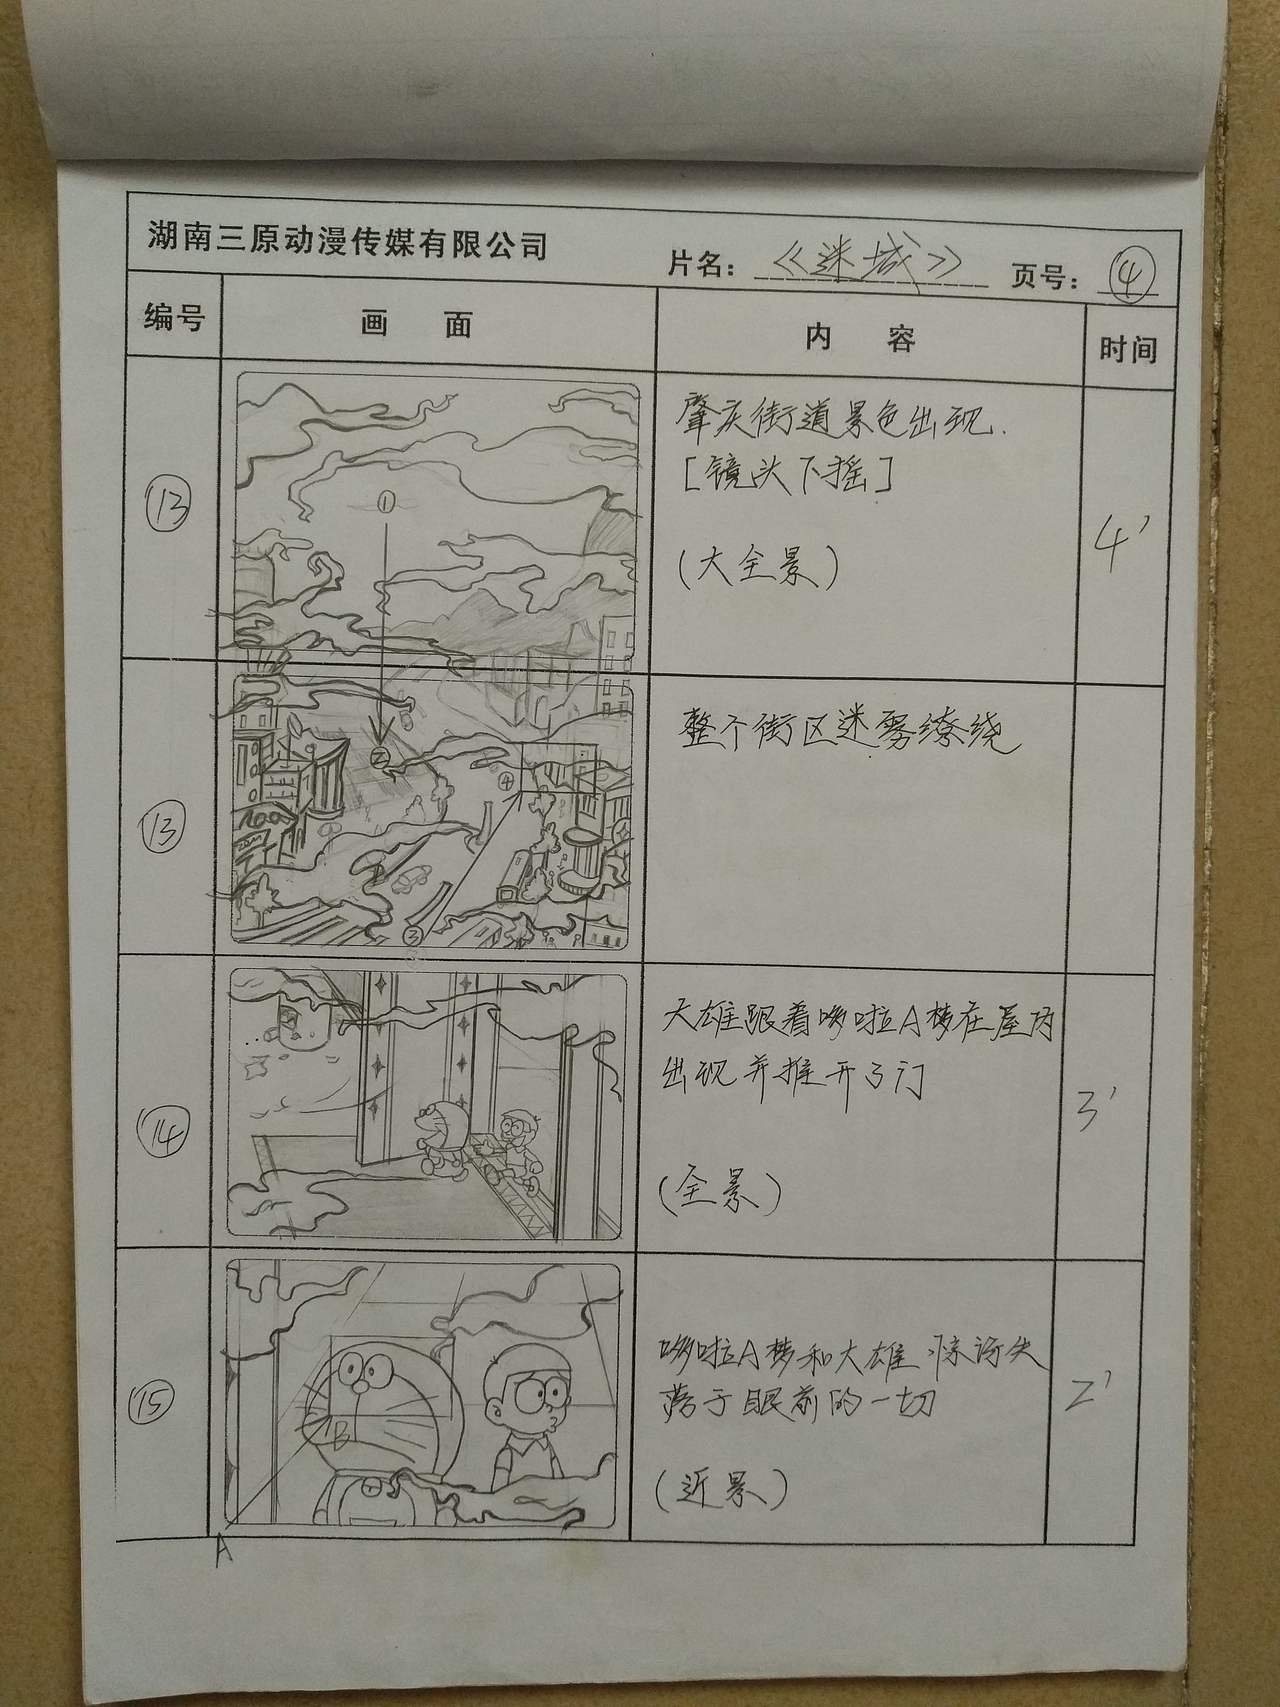 湖南三原动漫传媒有限公司
片名：《迷城》 页号：④
编号 画面 内容 时间
⑬
①
肇庆街道景色出现.
[镜头下摇]
(大全景)
4'
⑬
②
④
③
整个街区迷雾缭绕
⑭
大雄跟着哆啦A梦在屋内
出现并推开了门
(全景)
3'
⑮
B
A
哆啦A梦和大雄惊讶失
落于眼前的一切
(近景)
2'